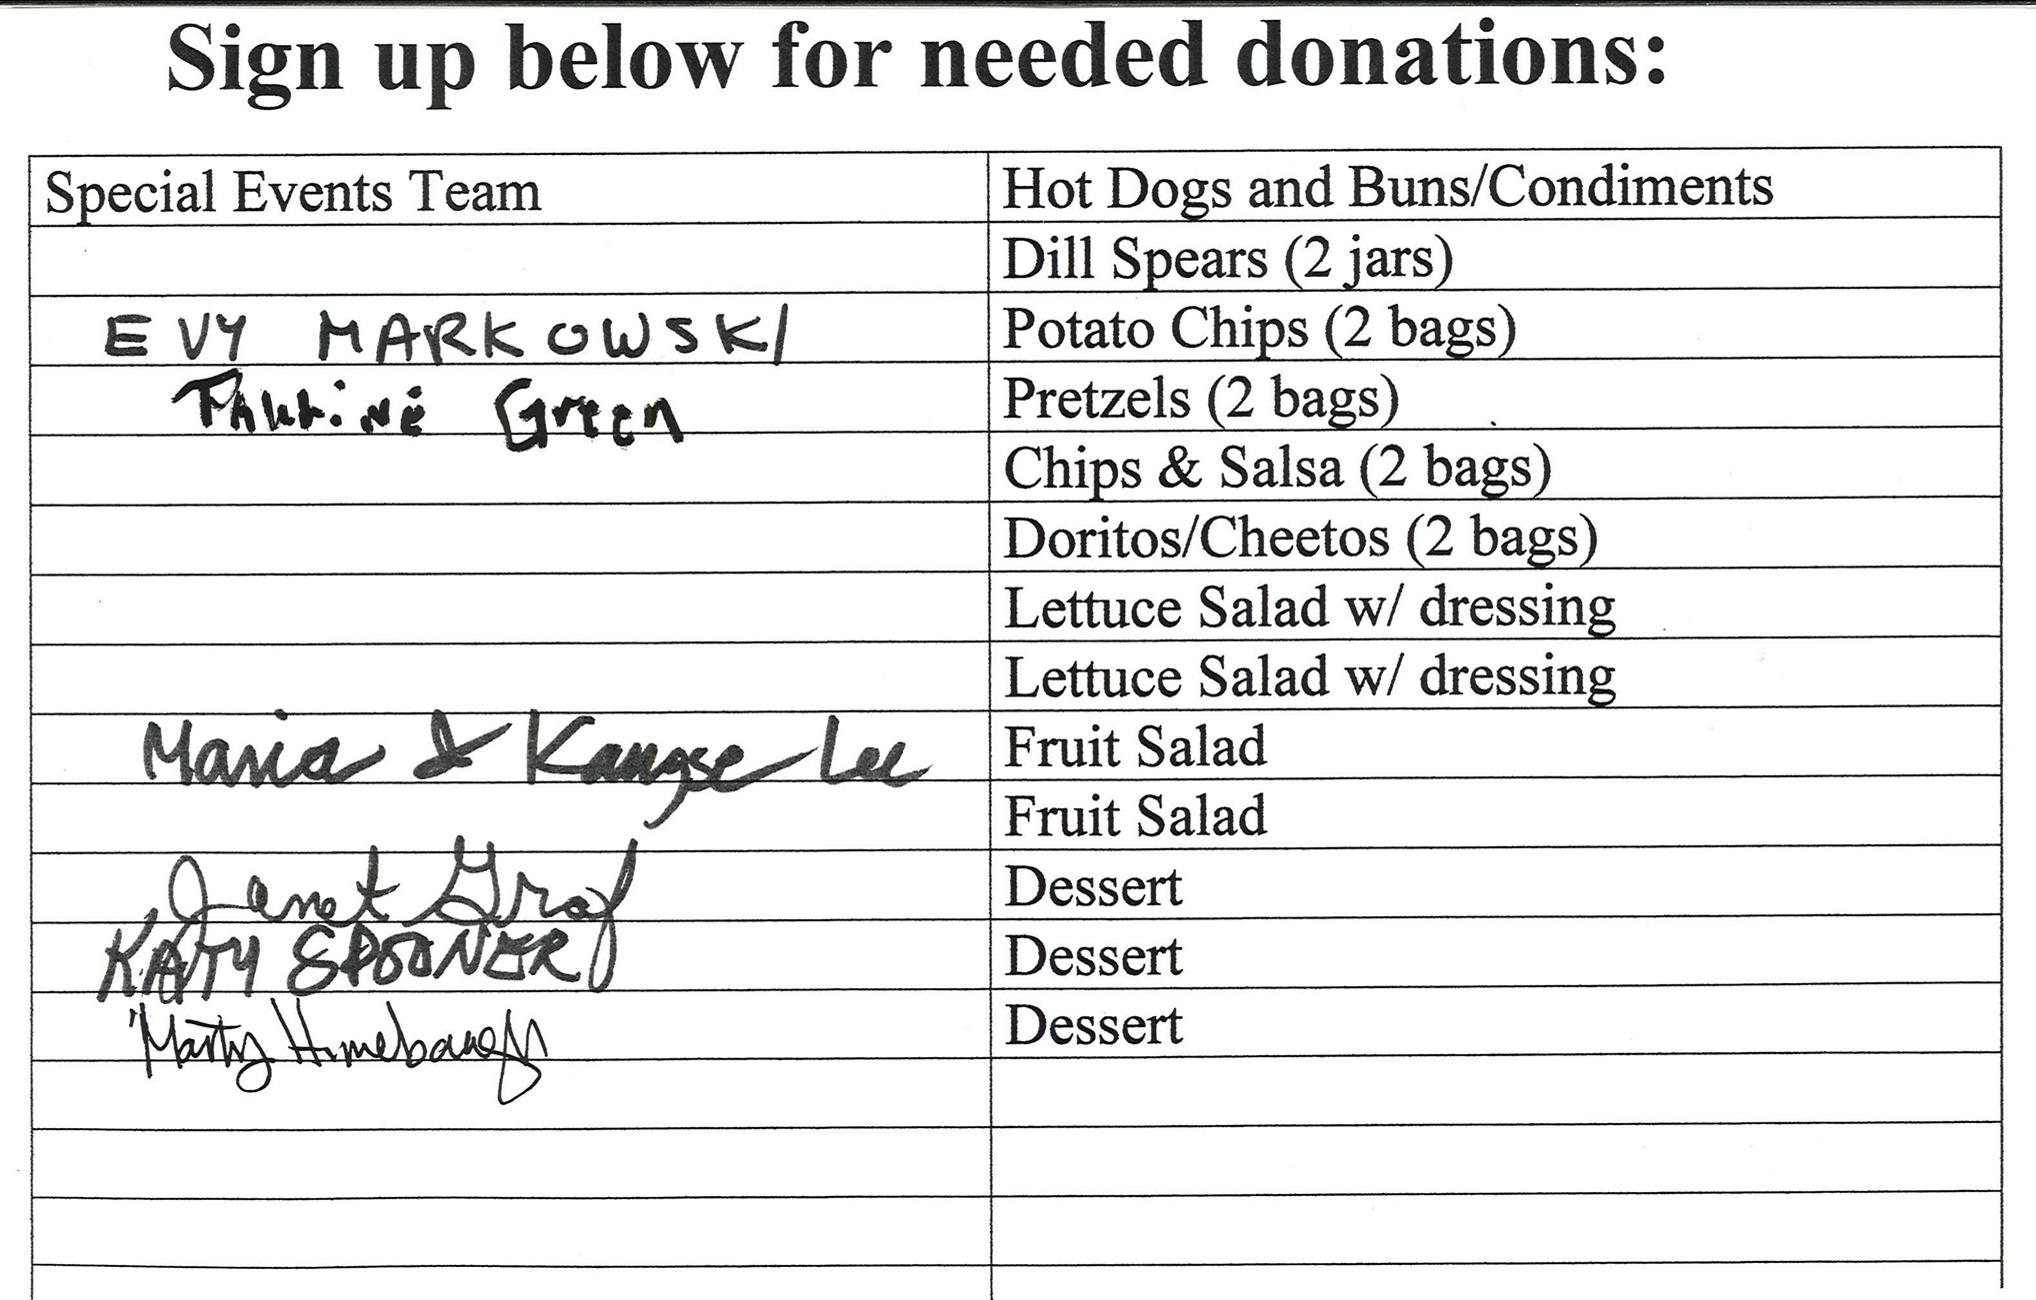 Sign up below for needed donations:
Special Events Team Hot Dogs and Buns/Condiments
Dill Spears (2 jars)
EVY MARKOWSKI Potato Chips (2 bags)
Pauline Green Pretzels (2 bags)
Chips & Salsa (2 bags)
Doritos/Cheetos (2 bags)
Lettuce Salad w/ dressing
Lettuce Salad w/ dressing
Maria & Lee Fruit Salad
Fruit Salad
Janet Graf Dessert
KATY SPOONER Dessert
Marty Himebaugh Dessert